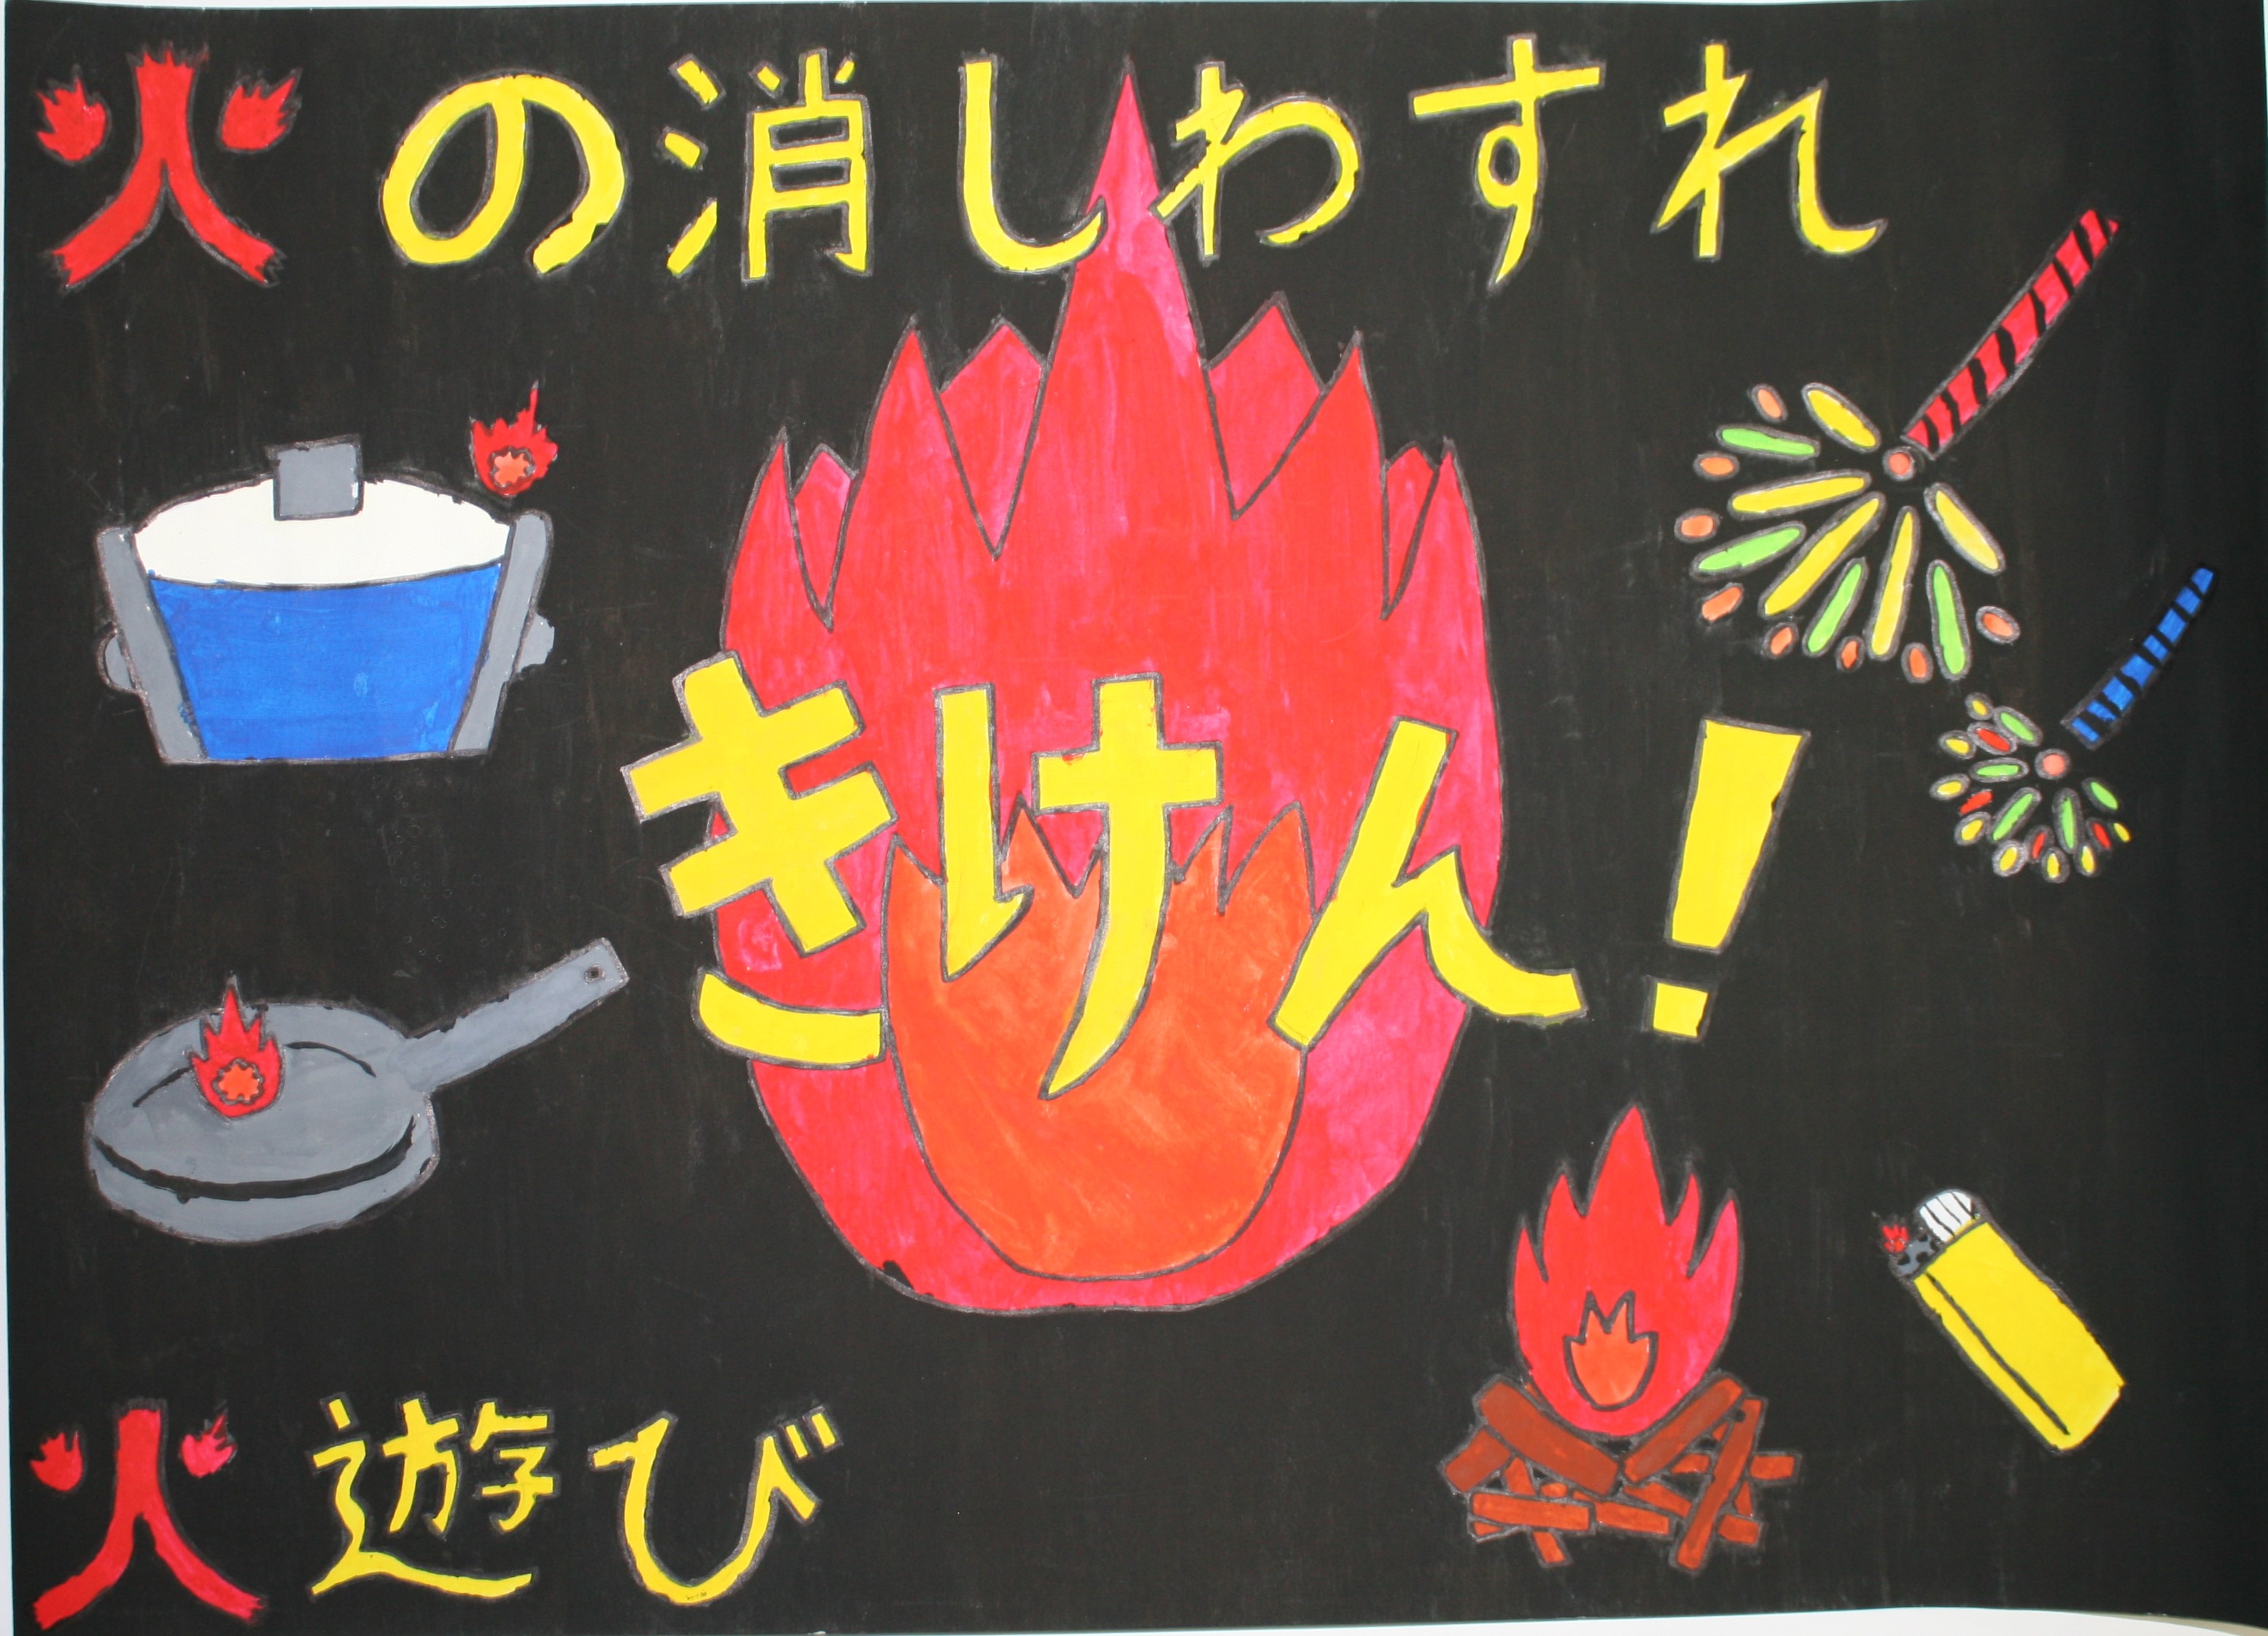 火の消しわすれ
きけん!
火遊び